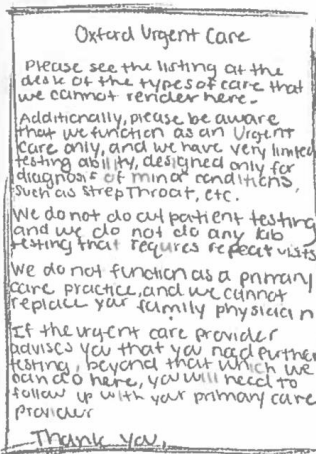 Oxford Urgent Care
Please see the listing at the
desk of the types of care that
we cannot render here.
Additionally, please be aware
that we function as an Urgent
care only, and we have very limited
testing ability, designed only for
diagnosis of minor conditions,
such as strep Throat, etc.
We do not do outpatient testing
and we do not do any lab
testing that requires repeat visits
We do not function as a primary
care practice, and we cannot
replace your family physician
If the urgent care provider
advises you that you need further
testing, beyond that which we
can do here, you will need to
follow up with your primary care
provider
Thank you,